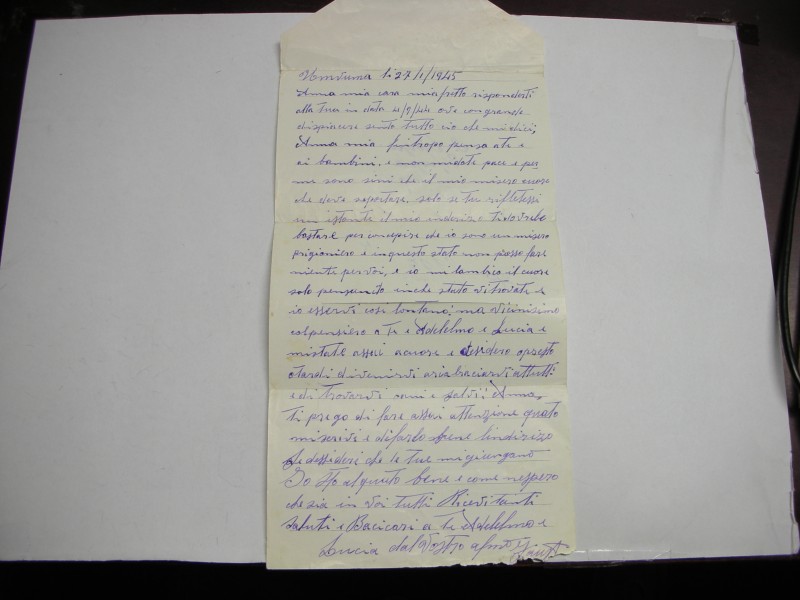 li 27/1/1945
Anna mia cara mia rispondoti
alla tua in data 4/9/44 ove con grande
dispiacere sento tutto ciò che mi dici,
Anna mia purtropo penso a te e
ai bambini, e non pace e per
me sono sini che il mio misero cuore
che deve soportare, solo se tu rifletessi
un istante il mio inderizo ti dovrebe
bastare per concepire che io sono un misero
prigioniero e in questo stato non posso fare
niente per voi, e io mi lambico il cuore
solo pensando in che stato vi trovate e
io esservi così lontano, ma vicinisimo
col pensiero a te e Adelelmo e Lucia e
mi state asseri a cuore e dessidero o presto
o tardi di venirvi a riabraciarvi a tutti
e di trovarvi sani e salvi; Anna,
ti prego di fare asseri attenzione quato
mi scrivi e di farlo bene l'indirizo
se dessideri che le tue mi giungano
Io sto alquato bene e come ne spero
che sia in voi tutti Ricevi tanti
saluti e Baci cari a te Adelelmo e
Lucia dal Vostro